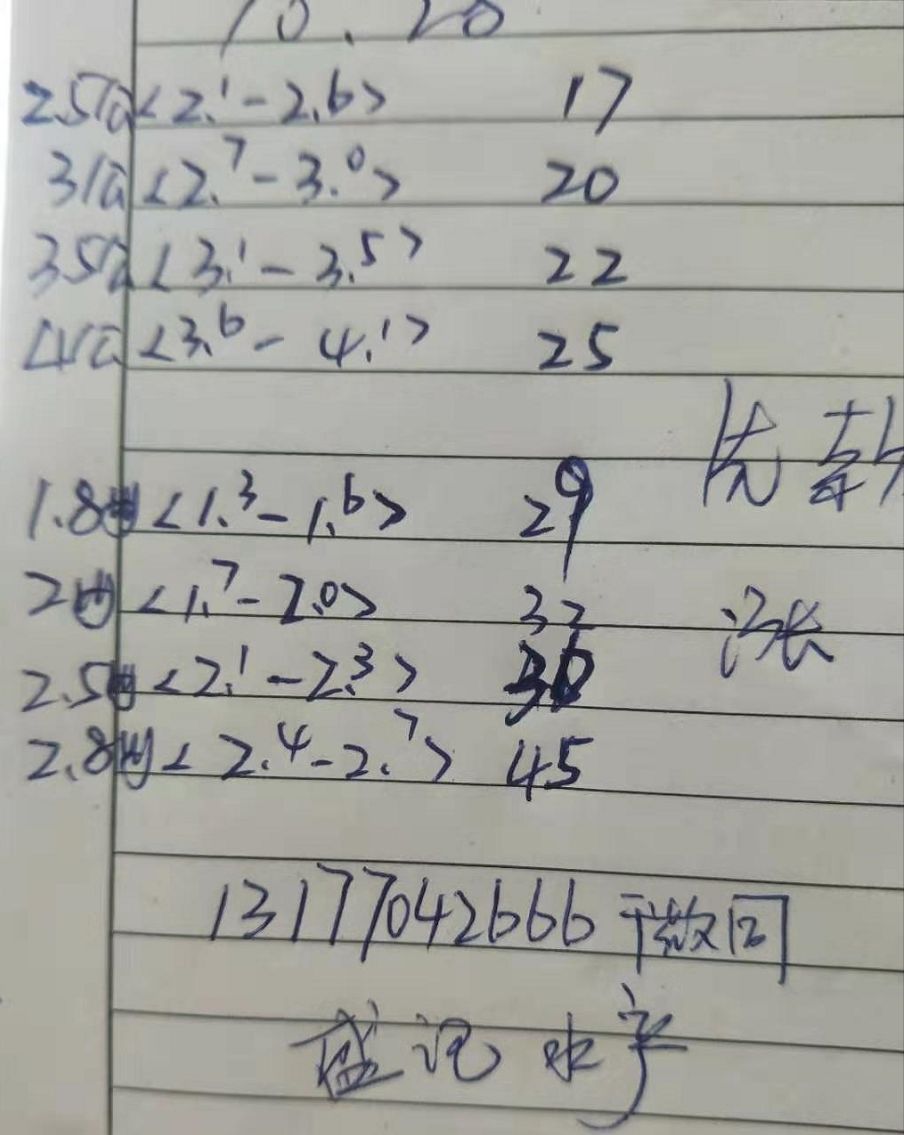 10.20
2.5公<2.1-2.6> 17
3公<2.7-3.0> 20
3.5公<3.1-3.5> 22
4公<3.6-4.1> 25
1.8母<1.3-1.6> 29
2母<1.7-2.0> 32
2.5母<2.1-2.3> 36
2.8母<2.4-2.7> 45
涨
13177042666 微同
盛记水产